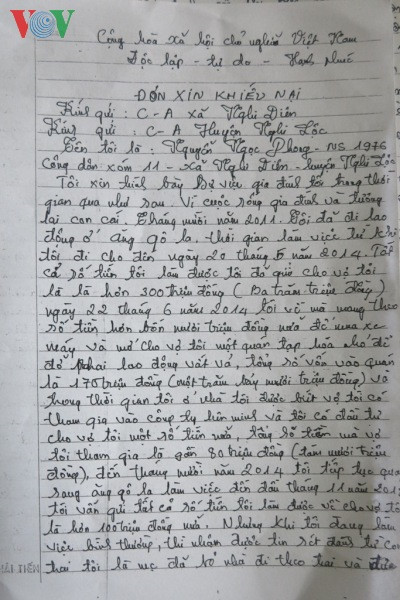 VOV
Cộng hòa xã hội chủ nghĩa Việt Nam
Độc lập - tự do - Hạnh Phúc
ĐƠN XIN KHIẾU NẠI
Kính gửi : C-A xã Nghi Diên
Kính gửi : C-A Huyện Nghi Lộc
Tên tôi là : Nguyễn Ngọc Phong - NS 1976
Công dân xóm 11 - xã Nghi Diên - huyện Nghi Lộc
Tôi xin trình bày sự việc gia đình tôi trong thời
gian qua như sau. Vì cuộc sống gia đình và tương
lai con cái. tháng mười năm 2011. Tôi đã đi lao
động ở ăng gô la. thời gian làm việc từ khi
tôi đi cho đến ngày 20 tháng 5 năm 2014. Tất
cả số tiền tôi làm được tôi đã gửi cho vợ tôi
là là hơn 300 triệu đồng (Ba trăm triệu đồng)
ngày 22 tháng 6 năm 2014 tôi về và mang theo
số tiền hơn bốn mươi triệu đồng nữa để mua xe
máy và mở cho vợ tôi một quán tạp hóa nhỏ để
đỡ phải lao động vất vả, tổng số vốn vào quán
là 170 triệu đồng (một trăm bảy mươi triệu đồng) và
trong thời gian tôi ở nhà tôi được biết vợ tôi có
tham gia vào công ty liên minh và tôi có đầu tư
cho vợ tôi một số tiền nữa, tổng số tiền mà vợ
tôi tham gia là gần 80 triệu đồng (tám mươi triệu
đồng), đến tháng mười năm 2014 tôi tiếp tục qua
sang ăng gô la làm việc đến đầu tháng 11 năm 201
tôi vẫn gửi tất cả số tiền tôi làm được về cho vợ tôi
là hơn 100 triệu đồng nữa. Nhưng khi tôi đang làm
việc bình thường, thì nhận được tin sét đánh từ con
trai tôi là mẹ đã bỏ nhà đi theo trai và
HẢI TIẾN